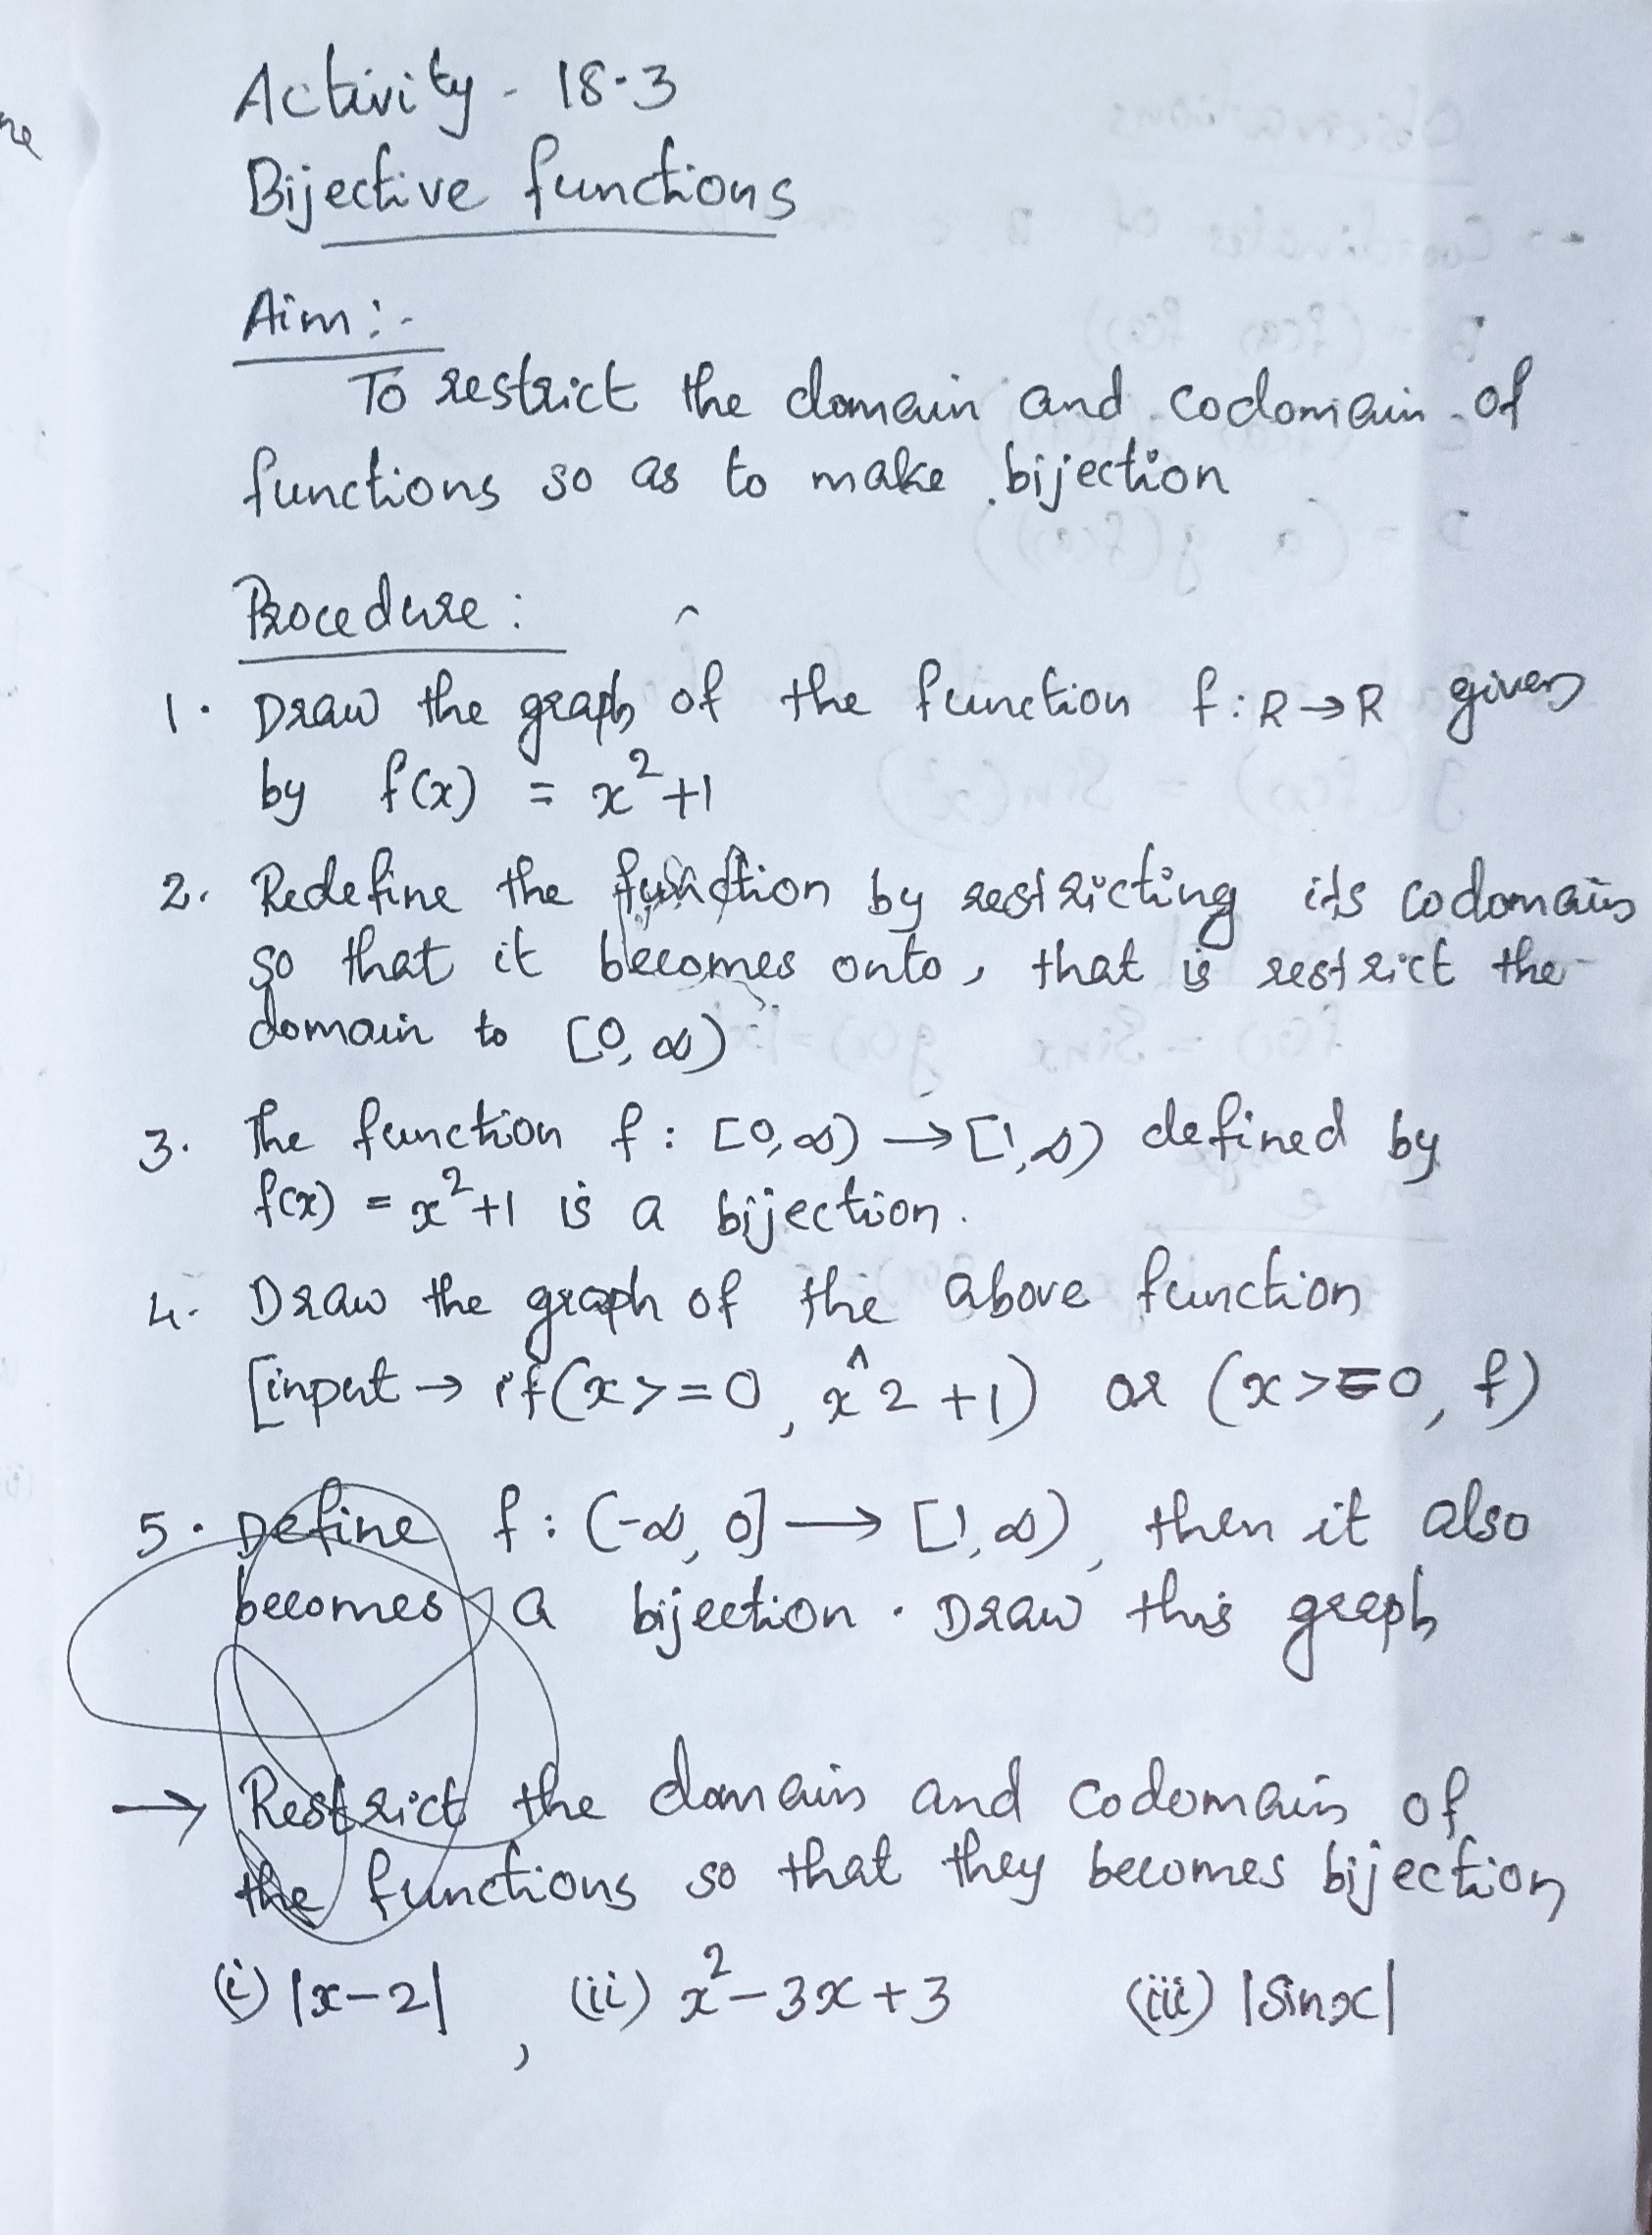 Activity - 18.3
Bijective functions
Aim :-
To restrict the domain and codomain of
functions so as to make bijection
Procedure :
1. Draw the graph of the function f : R → R given
by f(x) = x²+1
2. Redefine the function by restricting its codomain
so that it becomes onto, that is restrict the
domain to [0, ∞)
3. The function f : [0, ∞) → [1, ∞) defined by
f(x) = x²+1 is a bijection.
4. Draw the graph of the above function
[input → if(x >= 0, x^2 +1) or (x >= 0, f)
5. Define f : (-∞, 0] → [1, ∞), then it also
becomes a bijection. Draw this graph
→ Restrict the domain and codomain of
the functions so that they becomes bijection
(i) |x-2| , (ii) x²-3x+3 (iii) |Sinx|